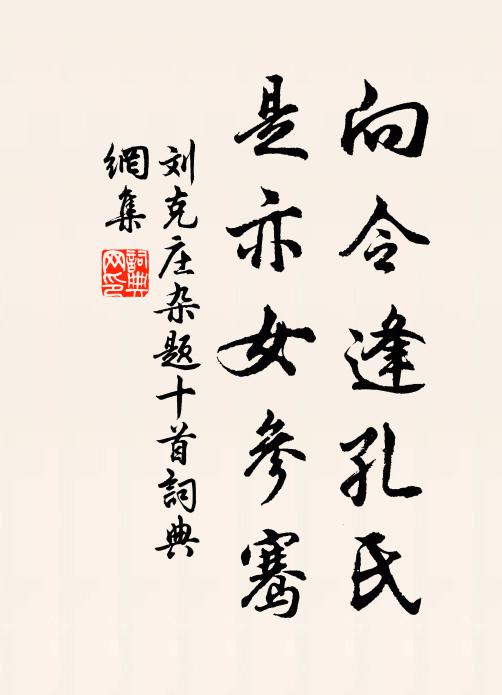 向令逢孔氏
是亦女參騫
刘克庄杂题十首詞典
網集
詞典
网印